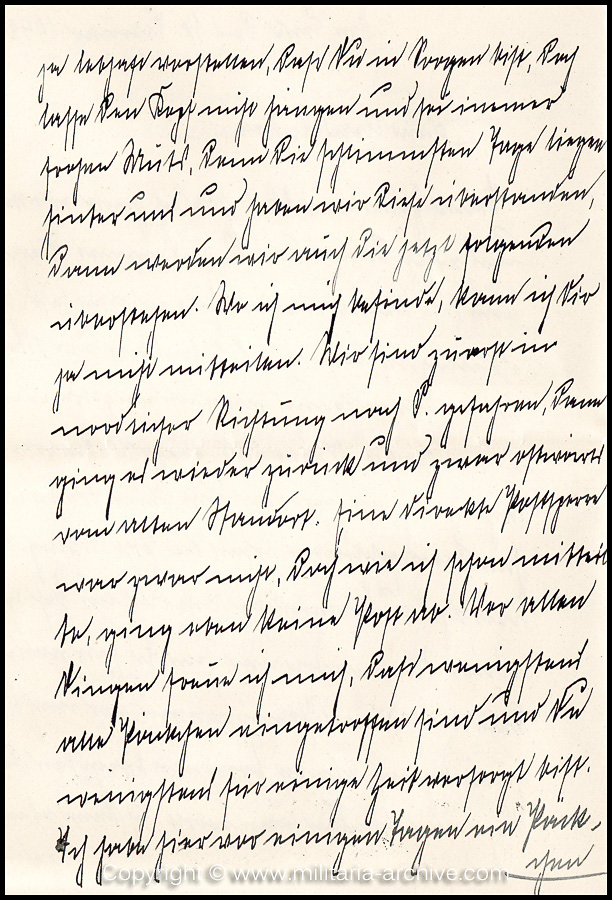 ja lebhaft vorstellen, daß Du in Sorgen bist, doch
lasse den Kopf nicht hängen und sei immer
frohen Muts, denn die schlimmsten Tage liegen
hinter uns und haben wir diese überstanden,
dann werden wir auch die jetzt folgenden
überstehen. Wo ich mich befinde, kann ich Dir
ja nicht mitteilen. Wir sind zuerst in
nördlicher Richtung nach P. gefahren, dann
ging es wieder zurück und zwar ostwärts
vom alten Standort. Eine direkte Postsperre
war zwar nicht, doch wie ich schon mitteil
te, ging eben keine Post ab. Vor allen
Dingen freue ich mich, daß wenigstens
alle Päckchen eingetroffen sind und Du
wenigstens für einige Zeit versorgt bist.
Ich habe hier vor einigen Tagen ein Päck-
chen
Copyright © www.militaria-archive.com